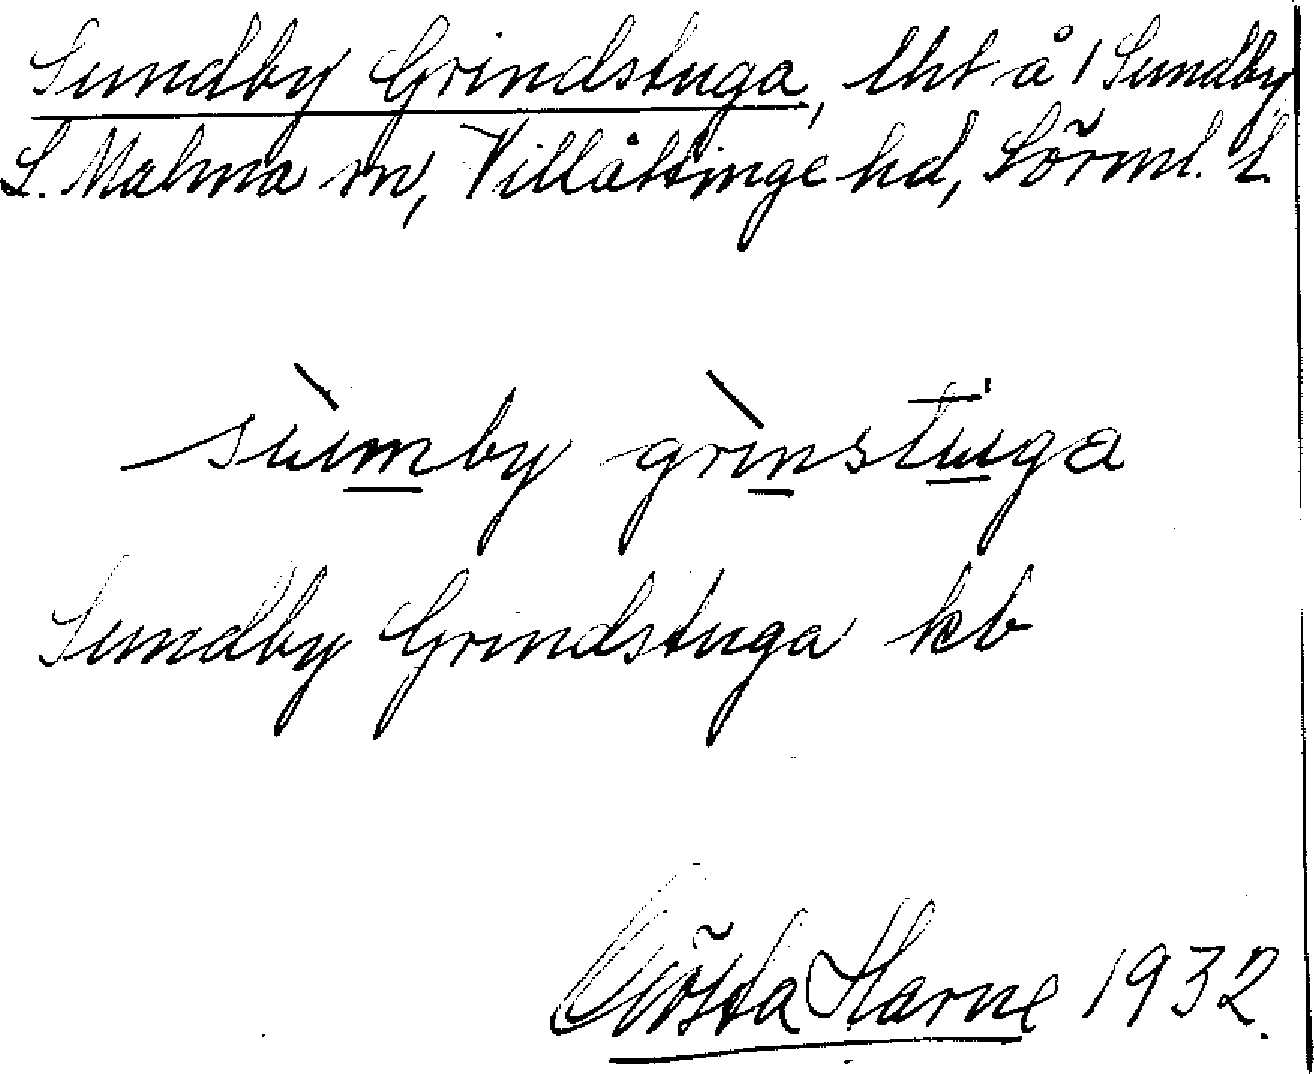 Sundby Grindstuga, lht å 1 Sundby,
L. Malma sn, Villåttinge hd, Sörml. l.
sùmby grìnstuga
Sundby Grindstuga kb
Gösta Harne 1932.